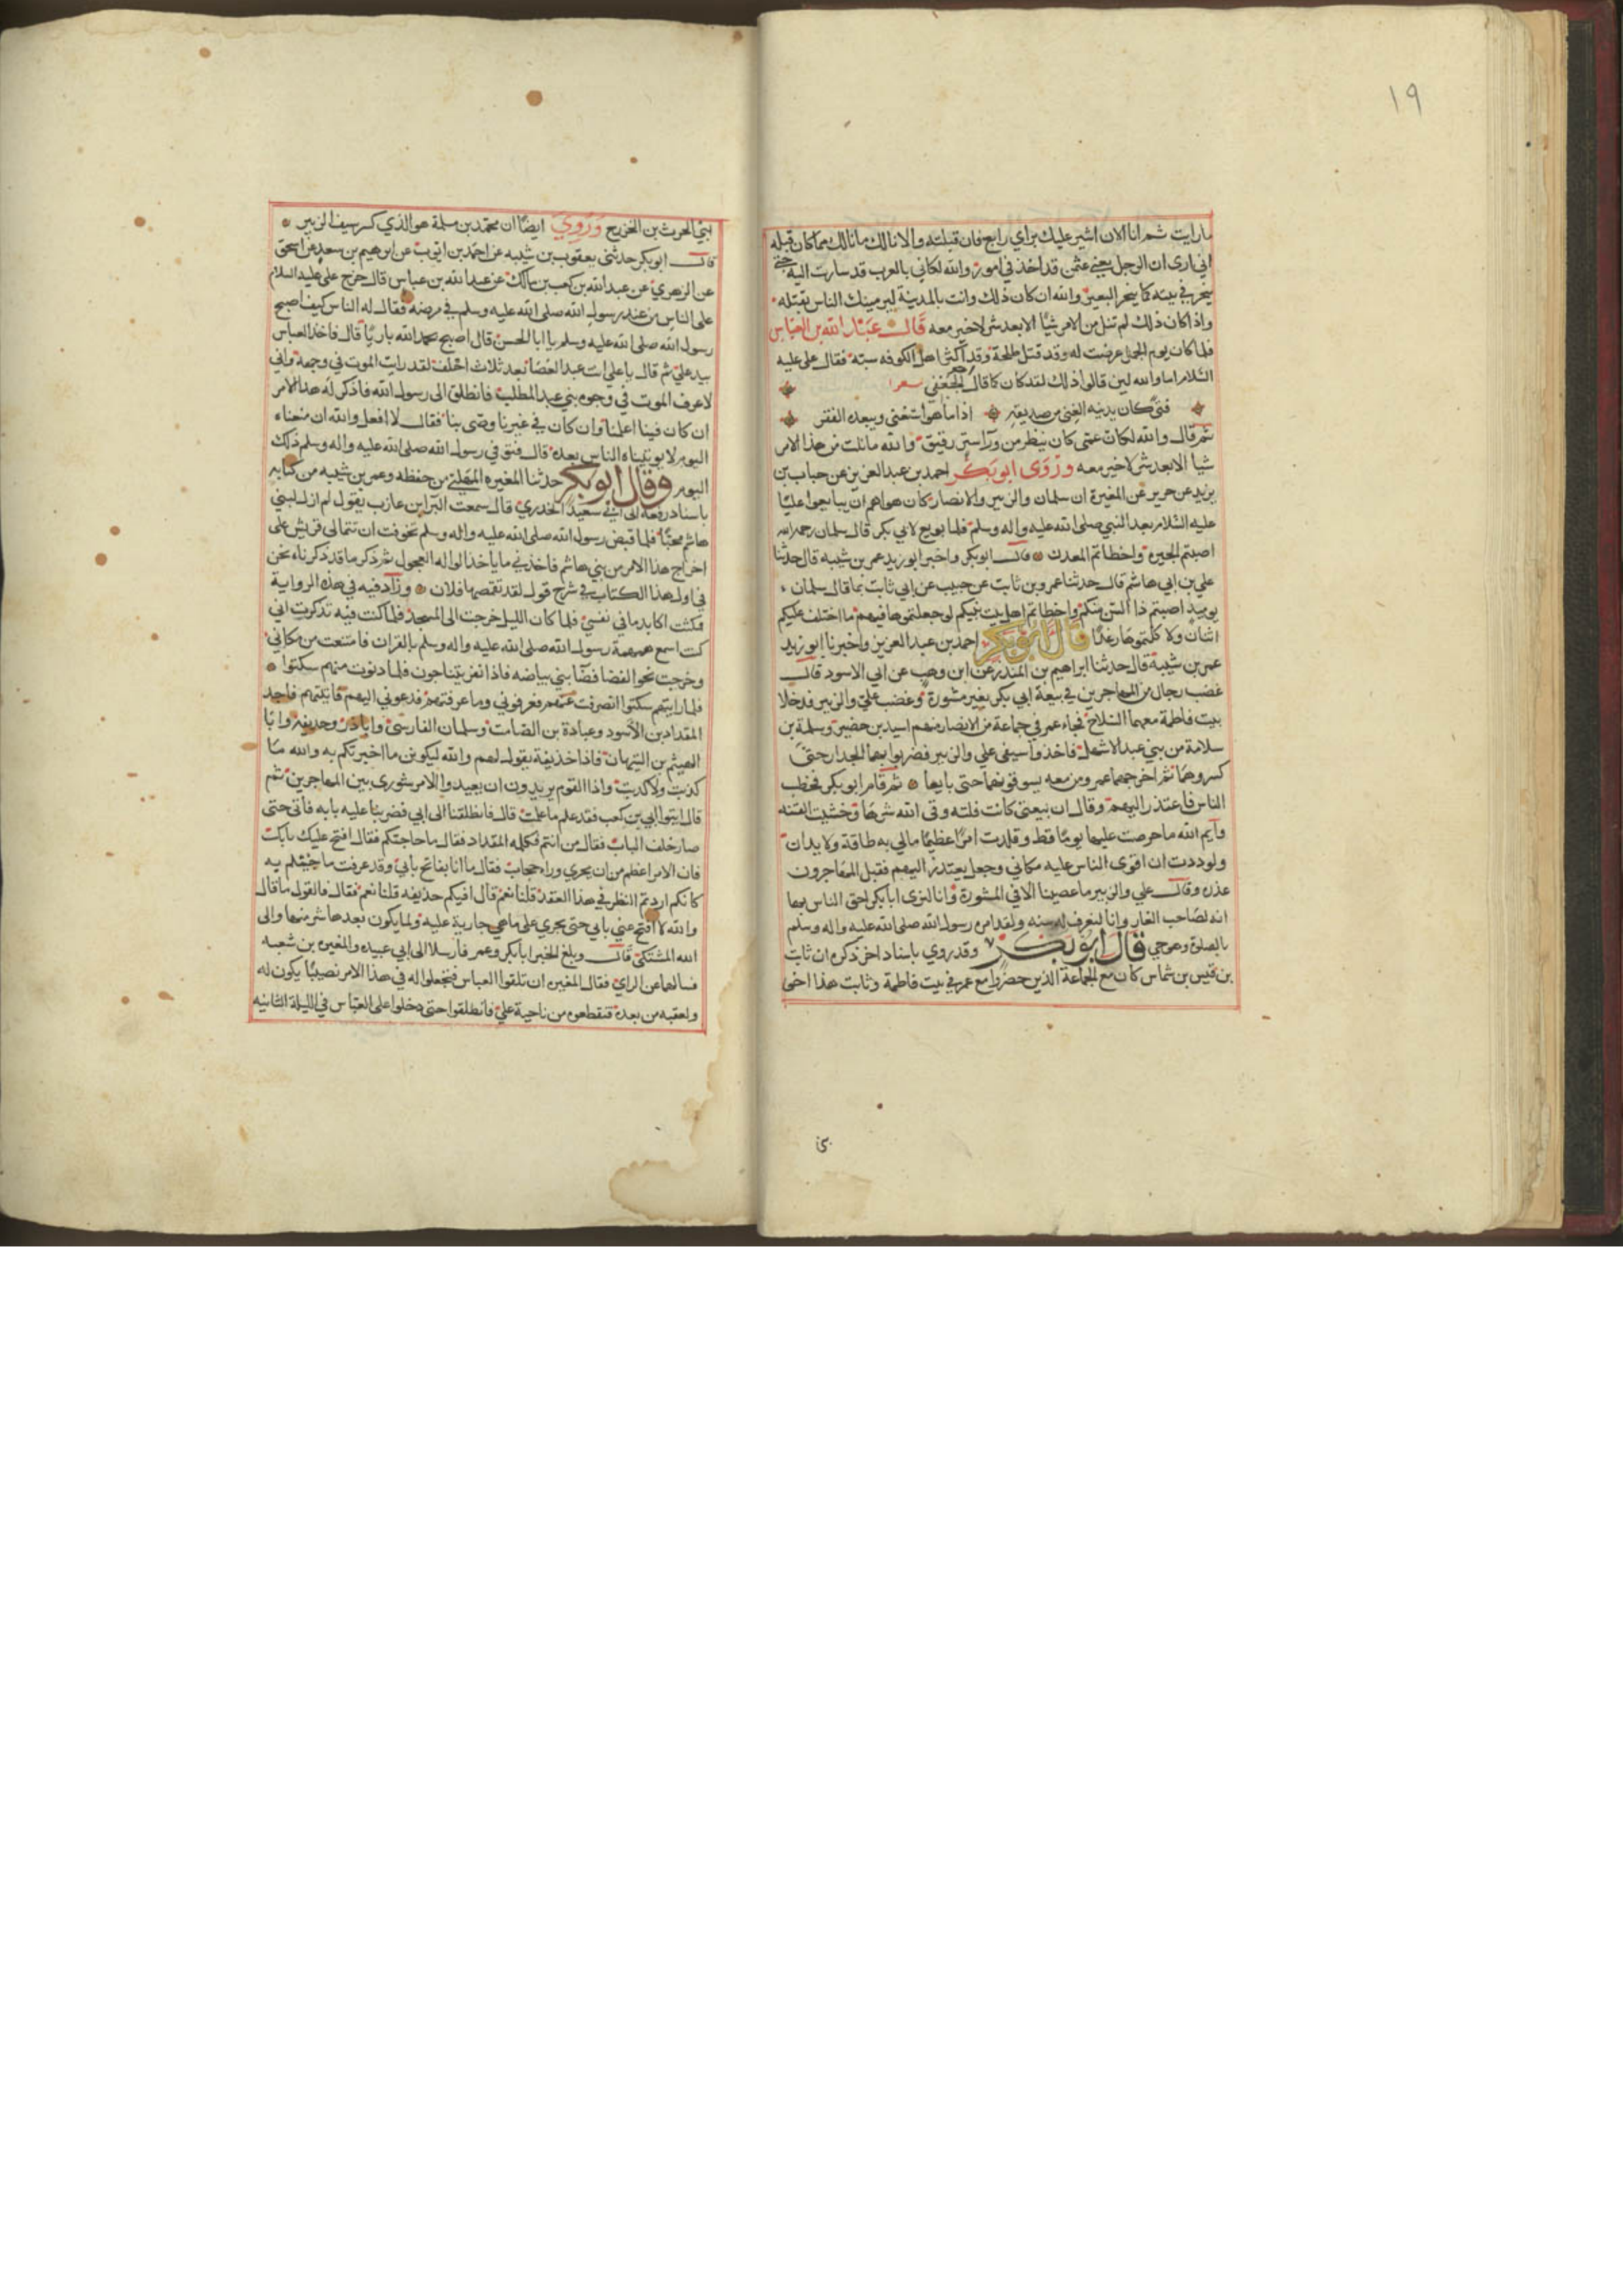 ١٩
ما رايت ثم انا الان اشير عليك براي رابع فان قبلته والا نالك ما نالك مما كان قبله
اني ارى ان الرجل يعني عثمن قد اخذ في امور والله لكاني بالعرب قد سارت اليه حتى
ينحر في بيته كما ينحر البعير والله ان كان ذلك وانت بالمدينة ليرمينك الناس بقتله
واذا كان ذلك لم تنل من الامر شيًا الا بعد شر لا خير معه قال عبد الله بن العباس
فلما كان يوم الجمل عرضت له وقد قتل طلحة وقد اكثر اهل الكوفه سبه فقال علي عليه
السلام اما والله لين قالوا ذلك لقد كان كما قال الجعفي شعرا
فتى كان يدنيه الغنى من صديقه اذا ما هو استغنى ويبعده الفقر
ثم قال والله لكان عمي كان ينظر من ورآ ستر رقيق والله ما نلت من هذا الامر
شيا الا بعد شر لا خير معه وروى ابو بكر احمد بن عبد العزيز عن حباب بن
يزيد عن جرير عن المغيرة ان سلمان والزبير والانصار كان هواهم ان يبايعوا عليًا
عليه السلام بعد النبي صلى الله عليه واله وسلم فلما بويع لابي بكر قال سلمان رحمه الله
اصبتم الخيرة واخطاتم المعدن قالـ ابو بكر واخبرا ابو زيد عمر بن شيبه قال حدثنا
علي بن ابي هاشم قال حدثنا عمرو بن ثابت عن حبيب عن ابي ثابت بما قال سلمان
يوميد اصبتم ذا السن منكم واخطاتم اهل بيت نبيكم لو جعلتموها فيهم ما اختلف عليكم
اثنان ولا كلتموها رغدًا قال ابو بكر احمد بن عبد العزيز واخبرنا ابو زيد
عمر بن شيبة قال حدثنا ابراهيم بن المنذر عن ابن وهب عن ابي الاسود قالـ
غضب رجال من المهاجرين في بيعة ابي بكر بغير مشورة وغضب علي والزبير فدخلا
بيت فاطمة معهما السلاح فجاء عمر في جماعة من الانصار منهم اسيد بن حضير وسلمة بن
سلامة من بني عبد الاشهل فاخذوا سيفي علي والزبير فضربوا بهما الجدار حتى
كسروهما ثم اخرجهما عمر ومن معه يسوقونهما حتى بايعا ثم قام ابو بكر فخطب
الناس فاعتذر اليهم وقال ان بيعتي كانت فلته وقى الله شرها وخشيت الفتنه
وايم الله ما حرصت عليها يومًا قط وقلدت امرًا عظيمًا مالي به طاقة ولا يدان
ولوددت ان اقوى الناس عليه مكاني وجعل يعتذر اليهم فقبل المهاجرون
عذره وقالـ علي والزبير ما غضبنا الا في المشورة وانا لنرى ابا بكر احق الناس بها
انه لصاحب الغار وانا لنعرف له سنه ولقد امره رسول الله صلى الله عليه واله وسلم
بالصلوة وهو حي قال ابو بكر وقد روي باسناد اخر ذكره ان ثابت
بن قيس بن شماس كان مع الجماعة الذين حضروا مع عمر في بيت فاطمة وثابت هذا اخي
بني الحرث بن الخزرج وروي ايضًا ان محمد بن مسلمة هو الذي كسر سيف الزبير
قالـ ابو بكر حدثني يعقوب بن شيبه عن احمد بن ايوب عن ابرهيم بن سعد عن اسحق
عن الزهري عن عبد الله بن كعب بن مالك عن عبد الله بن عباس قال خرج علي عليه السلام
على الناس من عند رسول الله صلى الله عليه وسلم في مرضه فقال له الناس كيف اصبح
رسول الله صلى الله عليه وسلم يا ابا الحسن قال اصبح بحمد الله باريًا قال فاخذ العباس
بيد علي ثم قال يا علي انت عبد العصا بعد ثلاث احلف لقد رايت الموت في وجهه واني
لاعرف الموت في وجوه بني عبد المطلب فانطلق الى رسول الله فاذكر له هذا الامر
ان كان فينا اعلمنا وان كان في غيرنا وصى بنا فقال لا افعل والله ان منعناه
اليوم لا يوتيناه الناس بعده قال فتوفي رسول الله صلى الله عليه واله وسلم ذلك
اليوم وقال ابو بكر حدثنا المغيره المهلبي من حفظه وعمر بن شيبه من كتابه
باسناد رفعه الى ابي سعيد الخدري قال سمعت البرآ بن عازب يقول لم ازل لبني
هاشم محبًا فلما قبض رسول الله صلى الله عليه واله وسلم تخوفت ان تتمالى قريش على
اخراج هذا الامر من بني هاشم فاخذني ما ياخذ الواله العجول ثم ذكر ما قد ذكرناه نحن
في اول هذا الكتاب في شرح قوله لقد تقمصها فلان وزاد فيه في هذه الرواية
فمكثت اكابد ما في نفسي فلما كان الليل خرجت الى المسجد فلما كنت فيه تذكرت اني
كنت اسمع همهمة رسول الله صلى الله عليه واله وسلم بالقران فامتنعت من مكاني
وخرجت نحو الفضا فضا بني بياضه فاذا نفر يتناجون فلما دنوت منهم سكتوا
فلما رايتهم سكتوا انصرفت عنهم فعرفوني وما عرفتهم فدعوني اليهم فاتيتهم فاجد
المقداد بن الاسود وعبادة بن الصامت وسلمان الفارسي وابا ذر وحذيفة وابا
الهيثم بن التيهان فاذا حذيفة يقول لهم والله ليكونن ما اخبرتكم به والله ما
كذبت ولا كذبت واذا القوم يريدون ان يعيدوا الامر شورى بين المهاجرين ثم
قال ايتوا ابي بن كعب فقد علم ما علمت قال فانطلقنا الى ابي فضربنا عليه بابه فاتى حتى
صار خلف الباب فقال من انتم فكلمه المقداد فقال ما حاجتكم فقال افتح عليك بابك
فان الامر اعظم من ان يجري وراء حجاب فقال ما انا بفاتح بابي وقد عرفت ما جئتم له
كانكم اردتم النظر في هذا العقد قلنا نعم قال افيكم حذيفه قلنا نعم فقال فالقول ما قال
والله لا افتح عني بابي حتى يجري على ما هي جارية عليه ولما يكون بعدها شر منها والى
الله المشتكى قالـ وبلغ الخبر ابا بكر وعمر فارسلا الى ابي عبيده والمغيره بن شعبه
فسالاهما عن الراي فقال المغيره ان تلقوا العباس فتجعلوا له في هذا الامر نصيبًا يكون له
ولعقبه من بعده فتقطعوه من ناحية علي فانطلقوا حتى دخلوا على العباس في الليلة الثانيه